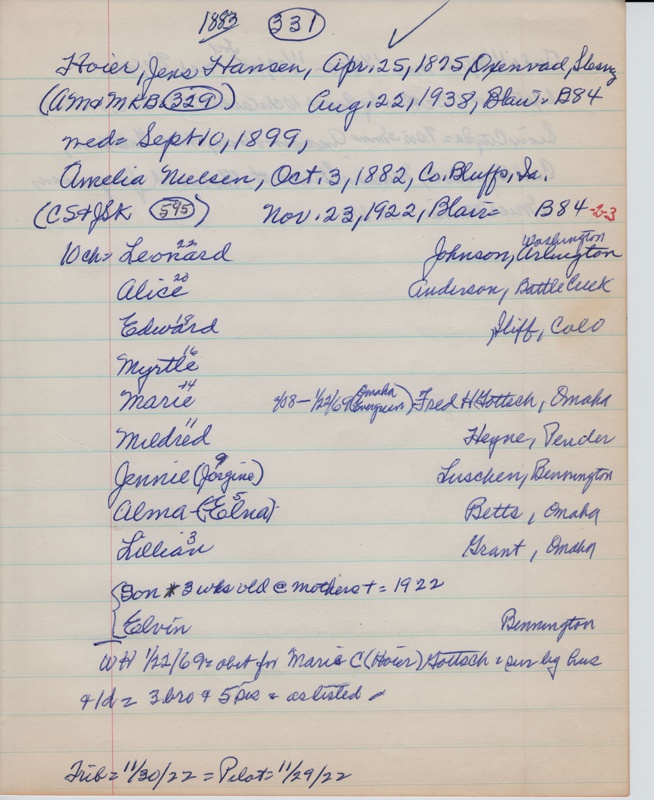 1883 331 ✓
Hoier, Jens Hansen, Apr. 25, 1875 Oxenvad, Slesvig
(AM & MKB 329) Aug. 22, 1938, Blair = B84
med = Sept 10, 1899,
Amelia Nielsen, Oct. 3, 1882, Co. Bluffs, Ia.
(CS & JSK 595) Nov. 23, 1922, Blair = B84 -2-3
10 ch = Leonard 22 Johnson, Arlington Washington
Alice 20 Anderson, Battle Creek
Edward 18 Iliff, Colo
Myrtle 16
Marie 14 908 - 1/22/69 (Omaha Evergreen) Fred H Gottsch, Omaha
Mildred 11 Heyne, Pender
Jennie (Jorgine) 9 Luschen, Bennington
Alma - (Elna) 5 Betts, Omaha
Lillian 3 Grant, Omaha
Son * 3 wks old @ mothers + = 1922
Elvin Bennington
WH 1/22/69 = obit for Marie C (Hoier) Gottsch = sur by hus
& 1d = 3 bro & 5 sis = as listed
Trib = 11/30/22 = Pilot = 11/29/22